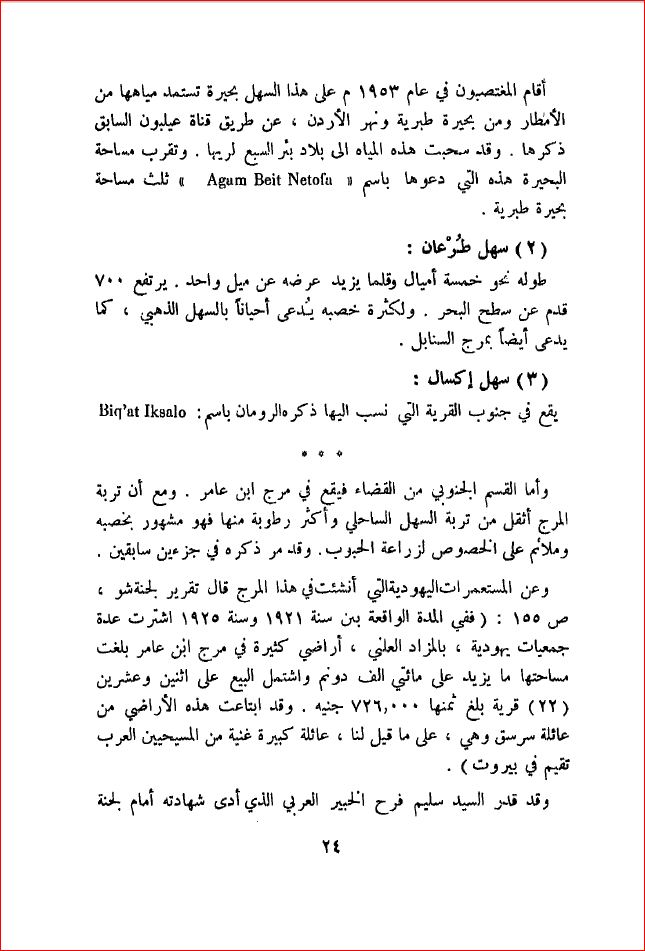 أقام المغتصبون في عام ١٩٥٣ م على هذا السهل بحيرة تستمد مياهها من
الأمطار ومن بحيرة طبرية ونهر الأردن ، عن طريق قناة عيلبون السابق
ذكرها . وقد سحبت هذه المياه الى بلاد بئر السبع لريها . وتقرب مساحة
البحيرة هذه التي دعوها باسم « Agam Beit Netofa » ثلث مساحة
بحيرة طبرية .
(٢) سهل طُرْعان :
طوله نحو خمسة أميال وقلما يزيد عرضه عن ميل واحد . يرتفع ٧٠٠
قدم عن سطح البحر . ولكثرة خصبه يُدعى أحياناً بالسهل الذهبي ، كما
يدعى أيضاً بمرج السنابل .
(٣) سهل إكسال :
يقع في جنوب القرية التي نسب اليها ذكره الرومان باسم : Biq'at Iksalo
* * *
وأما القسم الجنوبي من القضاء فيقع في مرج ابن عامر . ومع أن تربة
المرج أثقل من تربة السهل الساحلي وأكثر رطوبة منها فهو مشهور بخصبه
وملائم على الخصوص لزراعة الحبوب . وقد مر ذكره في جزءين سابقين .
وعن المستعمرات اليهودية التي أنشئت في هذا المرج قال تقرير لجنة شو ،
ص ١٥٥ : ( ففي المدة الواقعة بين سنة ١٩٢١ وسنة ١٩٢٥ اشترت عدة
جمعيات يهودية ، بالمزاد العلني ، أراضي كثيرة في مرج ابن عامر بلغت
مساحتها ما يزيد على مائتي الف دونم واشتمل البيع على اثنين وعشرين
(٢٢) قرية بلغ ثمنها ٧٢٦,٠٠٠ جنيه . وقد ابتاعت هذه الأراضي من
عائلة سرسق وهي ، على ما قيل لنا ، عائلة كبيرة غنية من المسيحيين العرب
تقيم في بيروت ) .
وقد قدر السيد سليم فرح الخبير العربي الذي أدى شهادته أمام لجنة
٢٤